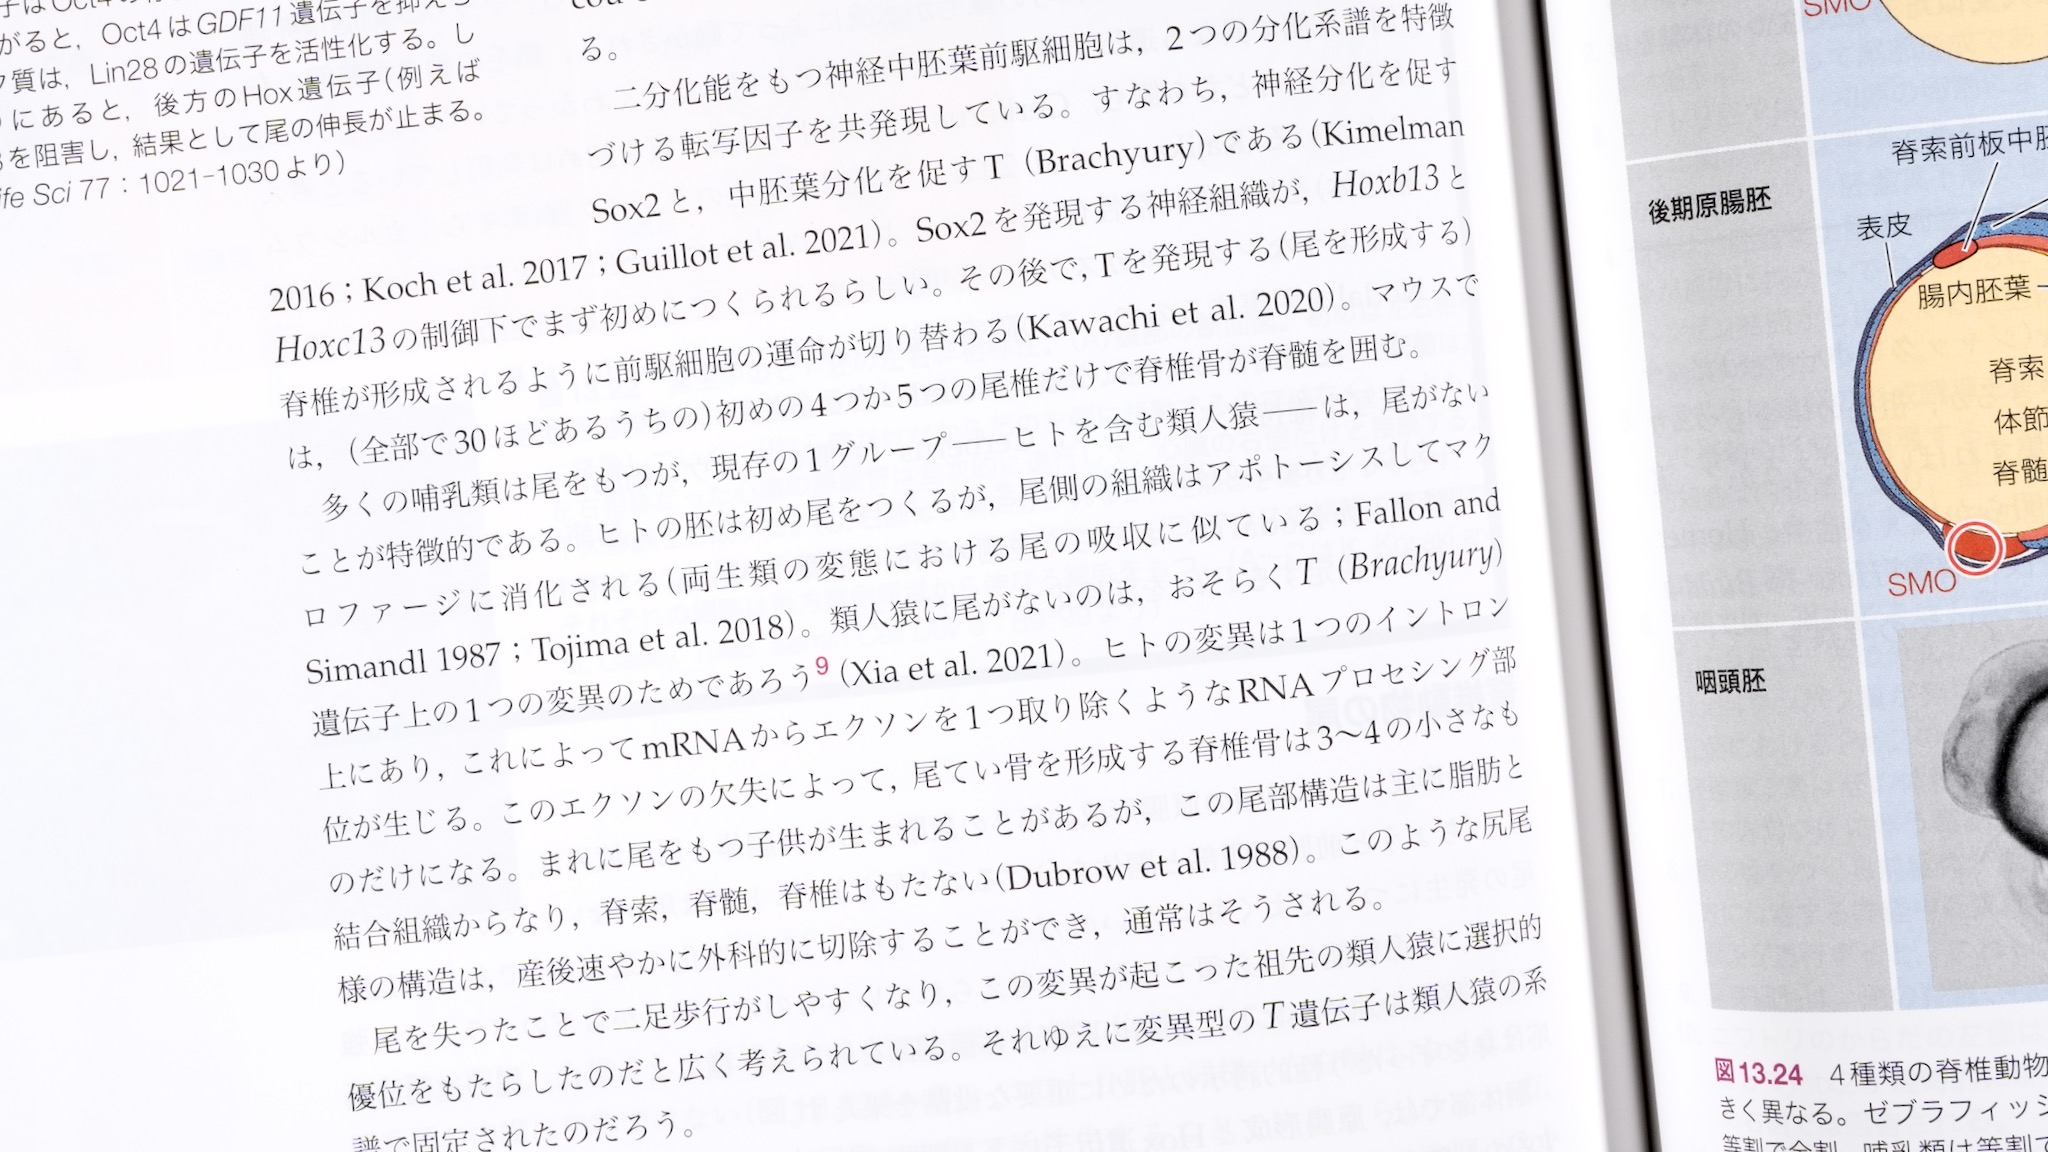 がると，Oct4はGDF11遺伝子を抑えら
ク質は，Lin28の遺伝子を活性化する。し
にあると，後方のHox遺伝子(例えば
を阻害し，結果として尾の伸長が止まる。
ife Sci 77：1021-1030より)
る。
二分化能をもつ神経中胚葉前駆細胞は，2つの分化系譜を特徴
づける転写因子を共発現している。すなわち，神経分化を促す
Sox2と，中胚葉分化を促すT (Brachyury)である(Kimelman
2016；Koch et al. 2017；Guillot et al. 2021)。Sox2を発現する神経組織が，Hoxb13と
Hoxc13の制御下でまず初めにつくられるらしい。その後で，Tを発現する(尾を形成する)
脊椎が形成されるように前駆細胞の運命が切り替わる(Kawachi et al. 2020)。マウスで
は，(全部で30ほどあるうちの)初めの4つか5つの尾椎だけで脊椎骨が脊髄を囲む。
多くの哺乳類は尾をもつが，現存の1グループ——ヒトを含む類人猿——は，尾がない
ことが特徴的である。ヒトの胚は初め尾をつくるが，尾側の組織はアポトーシスしてマク
ロファージに消化される(両生類の変態における尾の吸収に似ている；Fallon and
Simandl 1987；Tojima et al. 2018)。類人猿に尾がないのは，おそらくT (Brachyury)
遺伝子上の1つの変異のためであろう9 (Xia et al. 2021)。ヒトの変異は1つのイントロン
上にあり，これによってmRNAからエクソンを1つ取り除くようなRNAプロセシング部
位が生じる。このエクソンの欠失によって，尾てい骨を形成する脊椎骨は3〜4の小さなも
のだけになる。まれに尾をもつ子供が生まれることがあるが，この尾部構造は主に脂肪と
結合組織からなり，脊索，脊髄，脊椎はもたない(Dubrow et al. 1988)。このような尻尾
様の構造は，産後速やかに外科的に切除することができ，通常はそうされる。
尾を失ったことで二足歩行がしやすくなり，この変異が起こった祖先の類人猿に選択的
優位をもたらしたのだと広く考えられている。それゆえに変異型のT遺伝子は類人猿の系
譜で固定されたのだろう。
SMO
脊索前板中胚
後期原腸胚
表皮
腸内胚葉
脊索
体節
脊髄
SMO
咽頭胚
図13.24 4種類の脊椎動物
きく異なる。ゼブラフィッシ
等割で全割，哺乳類は等割で